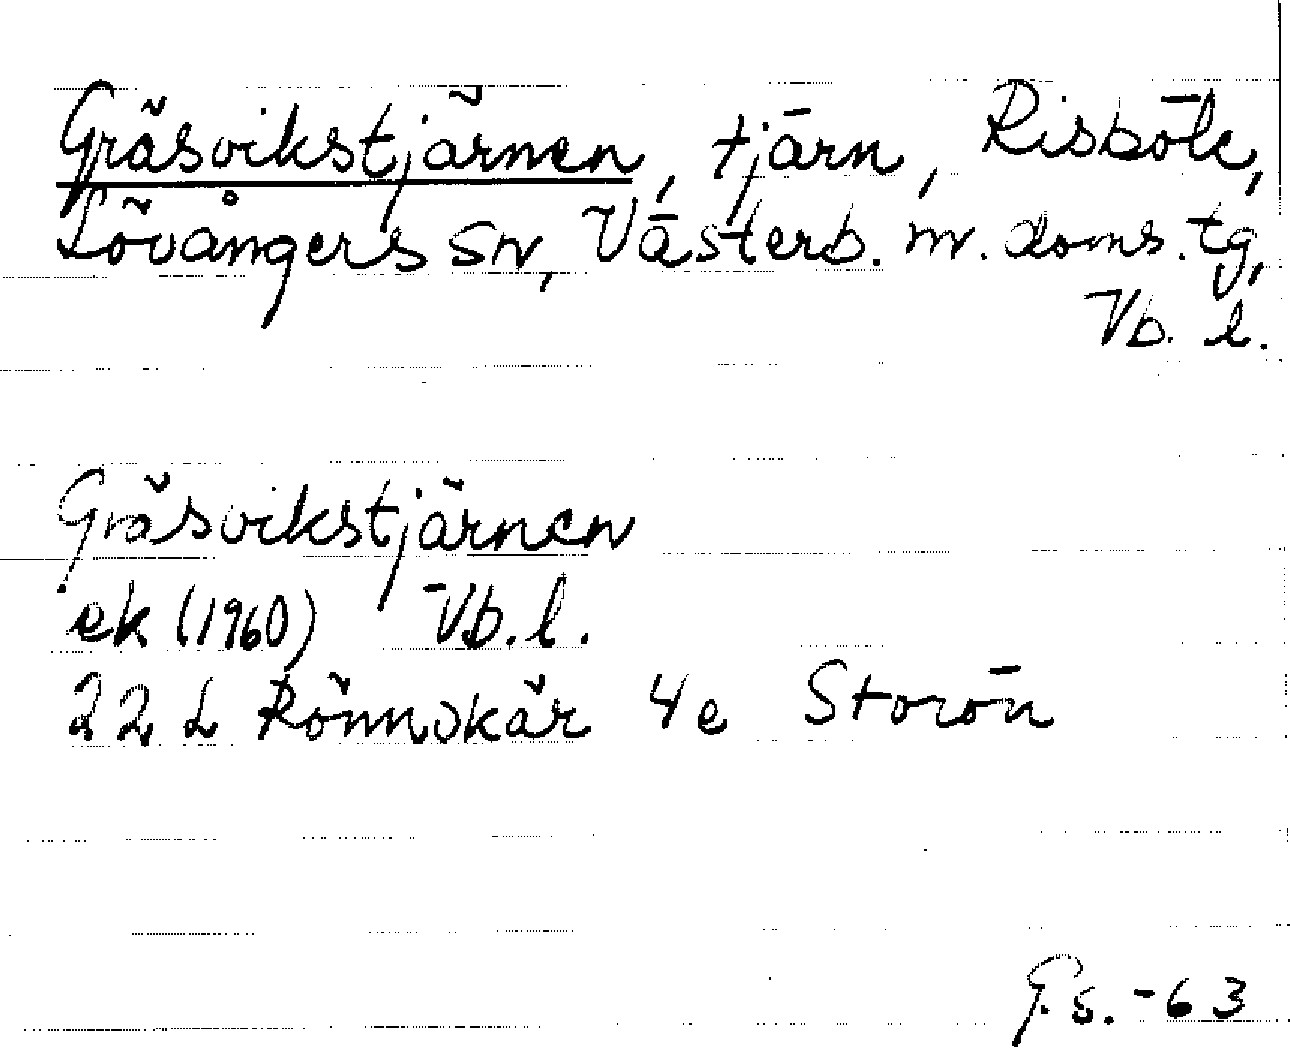 Gräsvikstjärnen, tjärn, Risböle,
Lövångers sn, Västerb. m. doms. tg,
Vb. l.
Gräsvikstjärnen
ek (1960) Vb. l.
22 L Rönnskär 4e Storön
G.s. -63